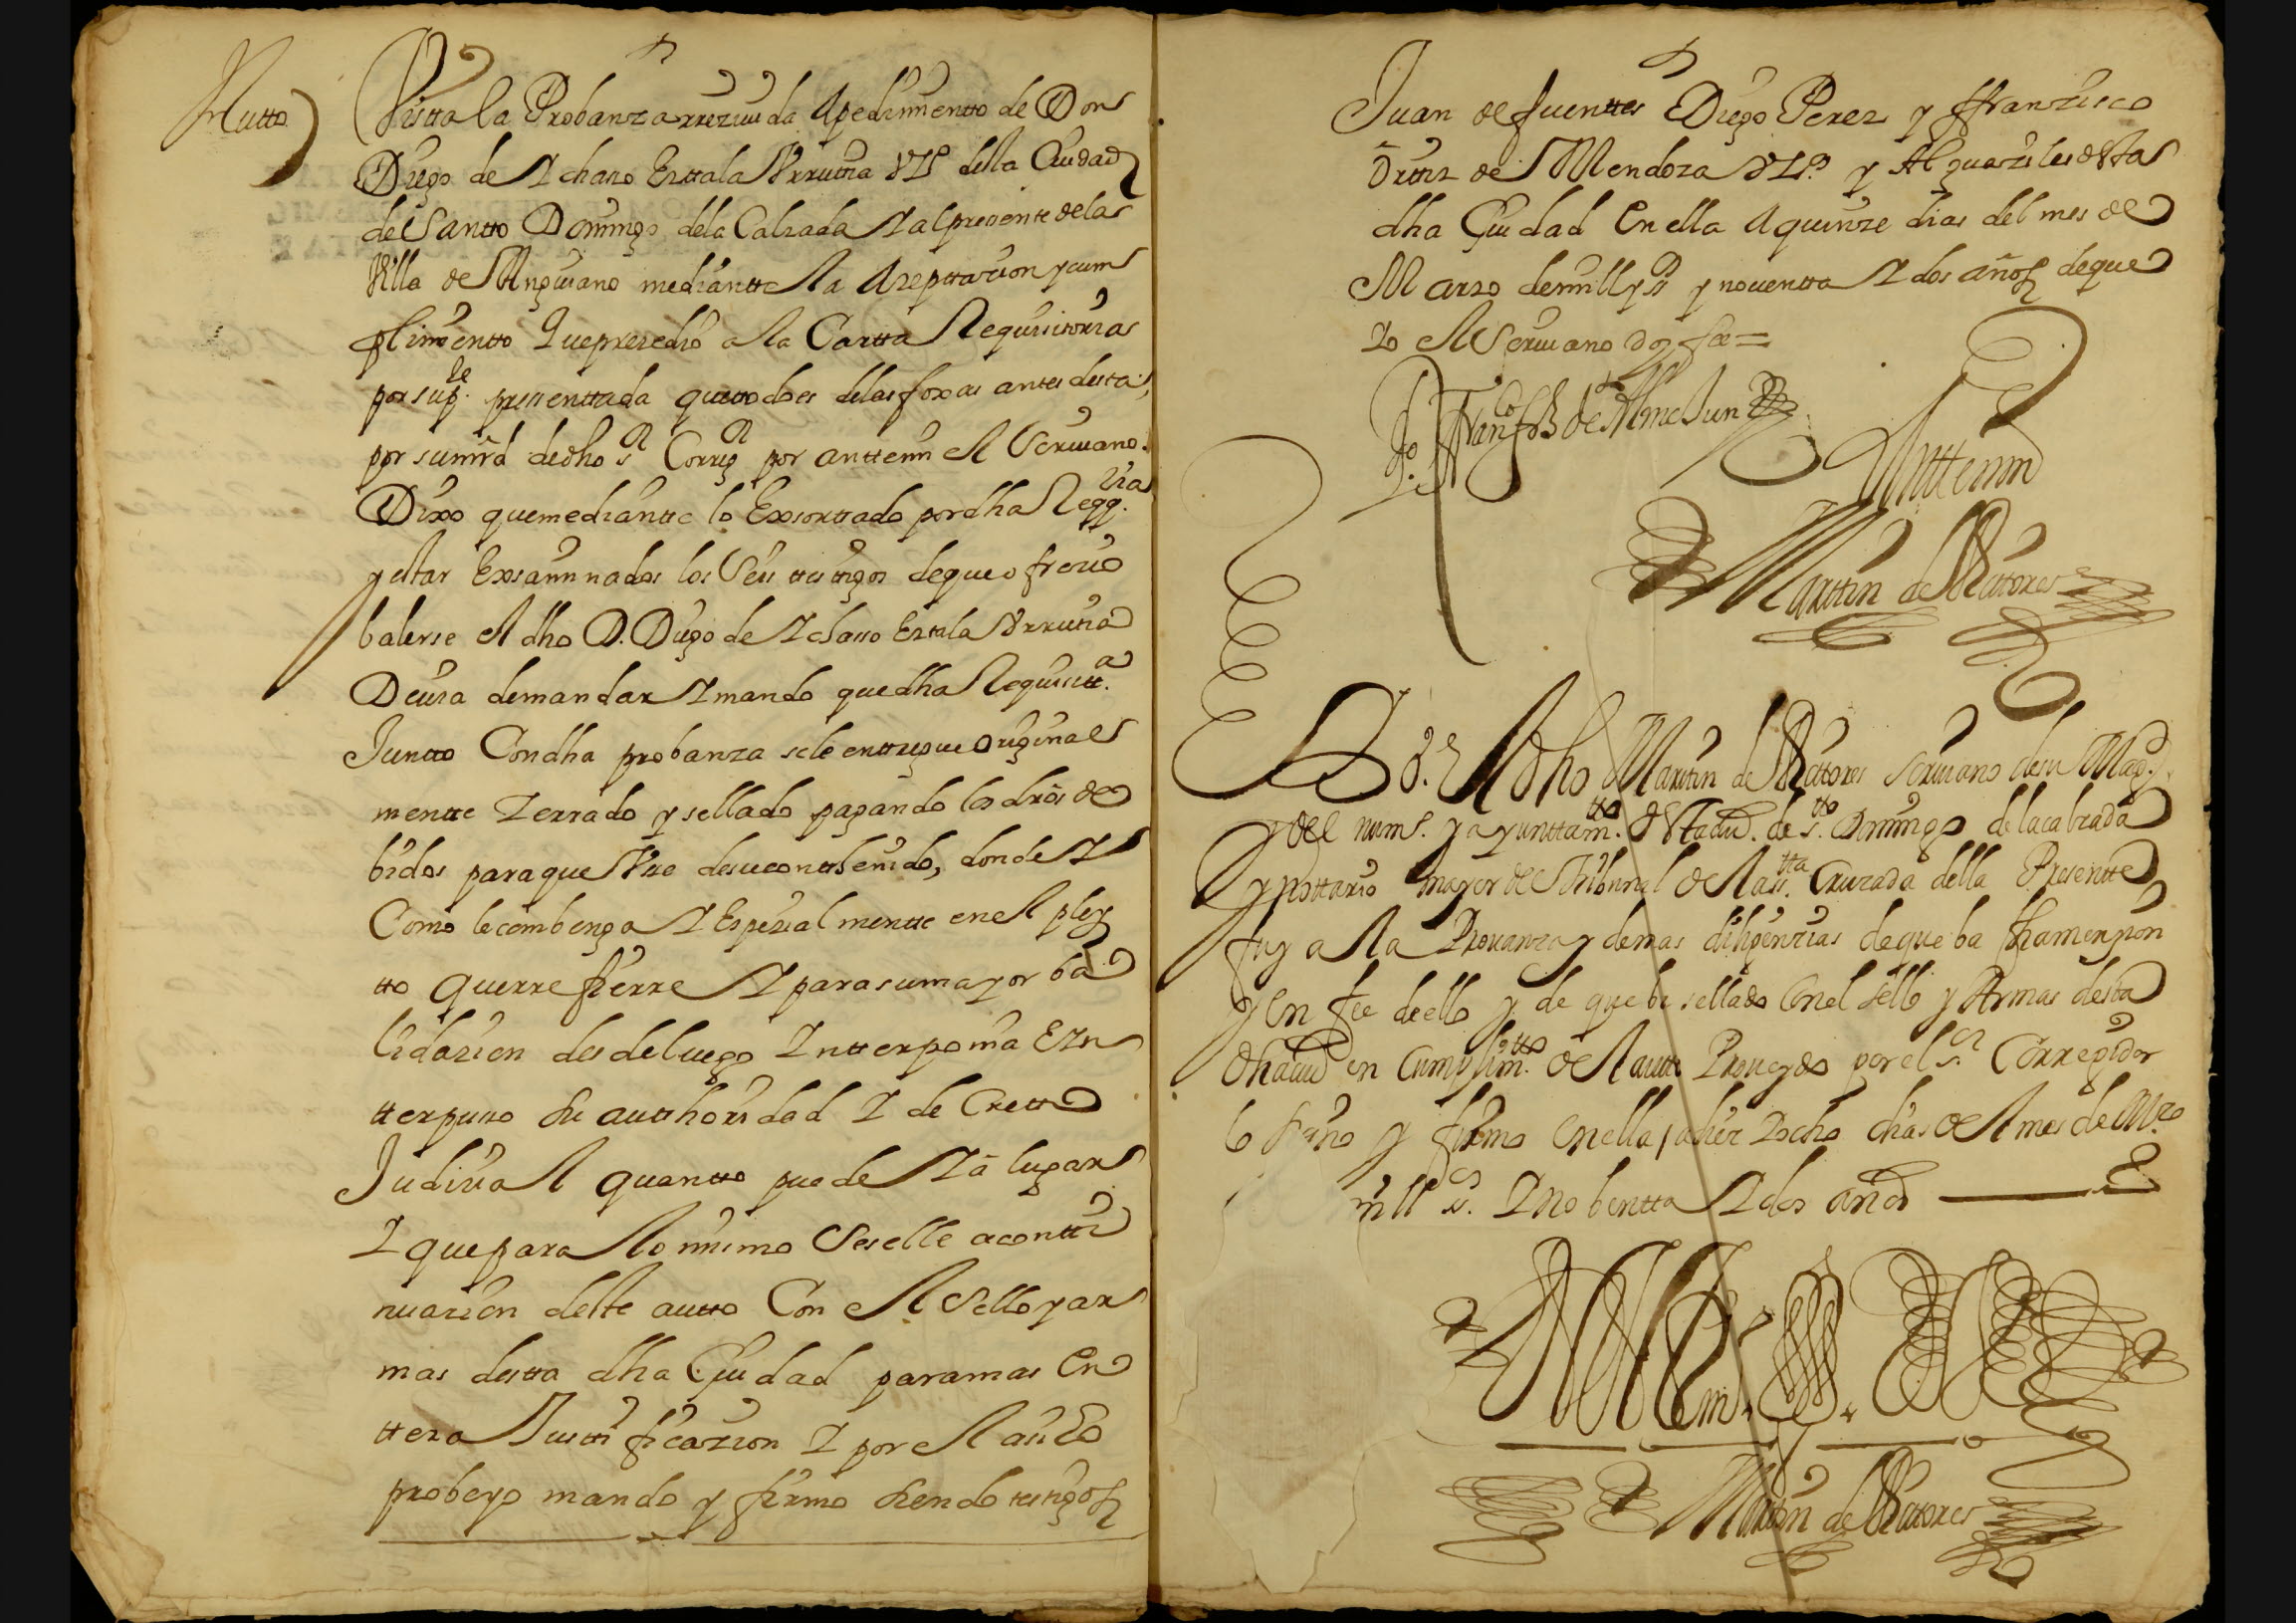 Autto
Vistta la Probanza rrezivida Apedimiento de Don
Diego de Ychaso Ezttala Urruttia vzº destta Ciudad
de Santto Domingo dela Calzada Y alpresente de la
Villa de Anguiano mediantte la Azepttazion y cum
plimientto Que prezedio a la Cartta Requisitoria
por su pte. presenttada que ttodo es delas foxas antes desta,
por su mrd de dho sr Corregr por anttemi el Scrivano.
Dixo que mediantte lo Exsorttado por dha Reqqria
y estar Exsaminados los Seis testigos de que ofrezio
balerse el dho D. Diego de Ychasso Eztala Urrutia
Devia demandar Y mando que dha Requisitta.
Juntto Con dha probanza se le enttregue Original
mentte Zerrado y sellado pagando los dros de
bidos para que Use de su conthenido, donde Y
Como le combenga Y Espezial mentte en el pley
tto que rrefierre Y para su mayor ba
lidazion desde luego Ynterponia E Yn
tterpuso Su authoridad Y de Cretto
Judizial quantto puede Y ā lugar
Y que para lo mismo Se selle a contti
nuazion deste autto Con el Sello y ar
mas destta dha Ciudad para mas En
ttera Justtificazion Y por el assi lo
probeyo mando y firmo Siendo testigos
Juan de fuenttes Diego Perez y ffranzisco
Ōrttiz de Mendoza vzºs y Alguaziles desta
dha Ciudad En ella A quinze dias del mes de
Marzo de mill y ss y noventta Y dos años de que
Yo el Scrivano doy fee =
Anttemi
Marttin de Mattores
Yo El dho Marttin de Mattores Scrivano de su Magd.
y del numº. y ayunttamtto. desta ciud. de stto. Domingo de la calzada
y nottario mayor del Tribunal de la stta. Cruzada della Presentte
fuy a la Provanza y demas diligenzias de que ba fha menzion
y En fee de ello y de que ba sellado Con el sello y Armas desta
dha ciud en Cumplimtto. del autto Proveydo por el sr. Corregidor
lo signo y firmo En ella a diez Y ocho dias del mes de Mzo
mill ss. Y nobentta Y dos años
Marttin de Mattores